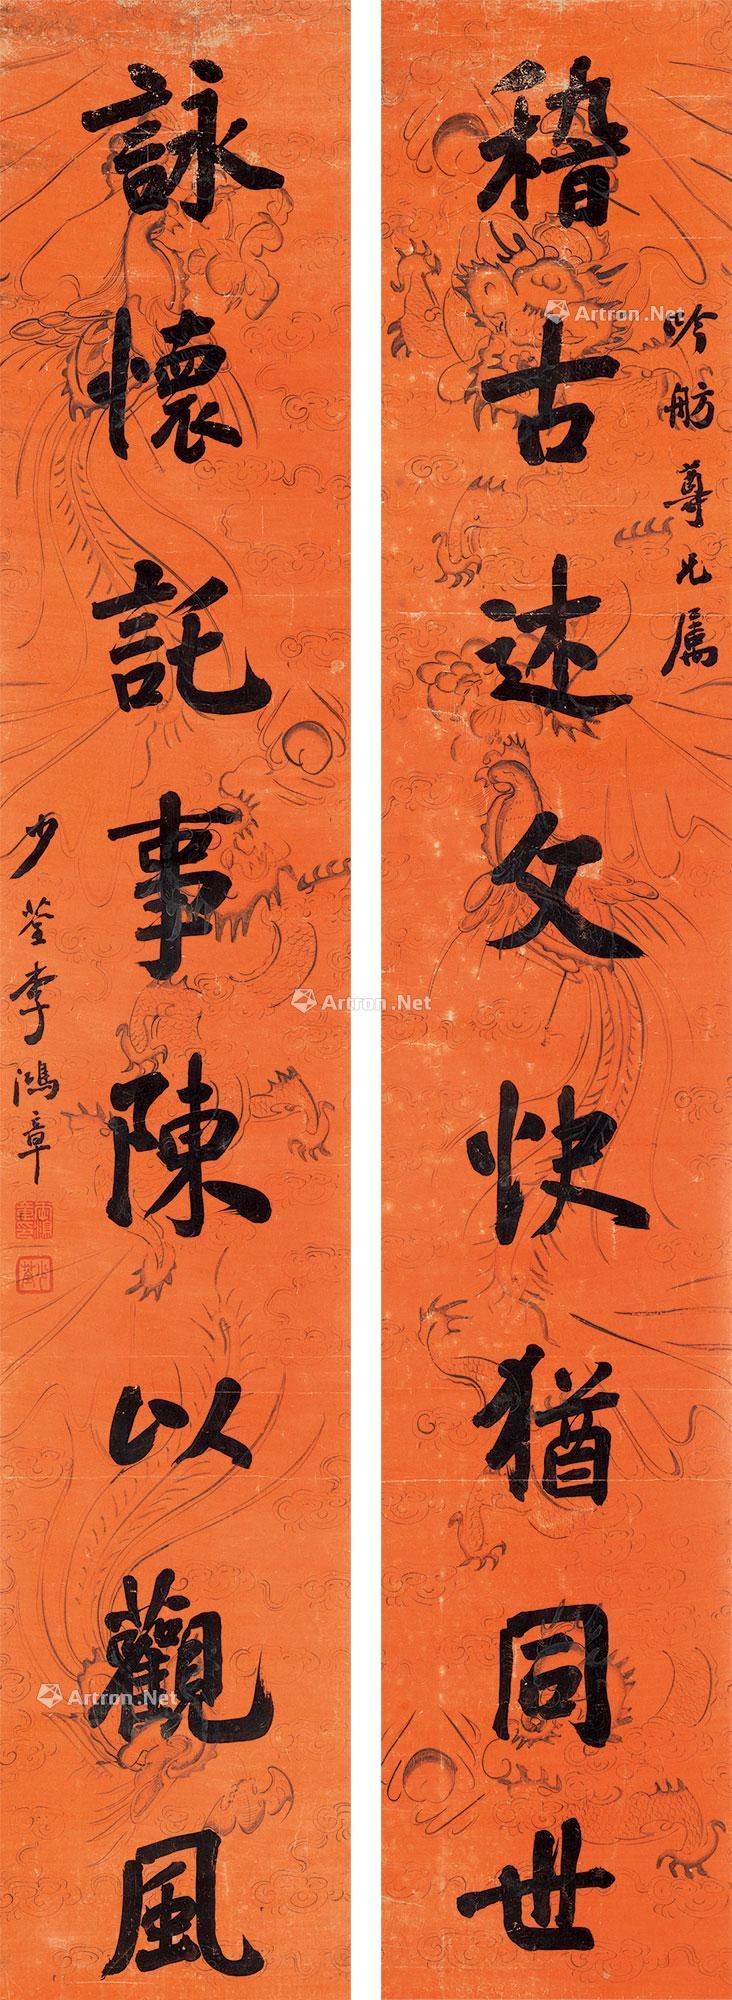 稽古述文快猶同世
吟舫尊兄属
詠懷託事陳以觀風
少荃李鴻章
Artron.Net
Artron.Net
Artron.Net